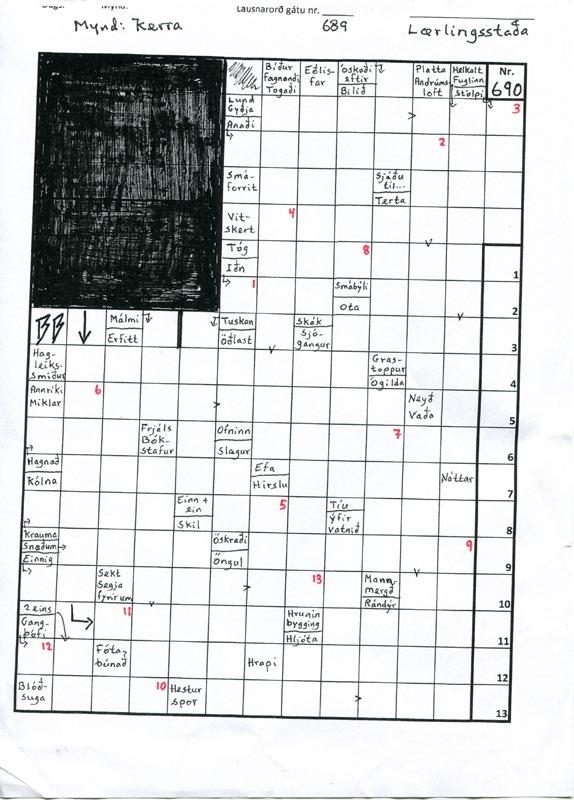 Dags. Mynd:
Lausnarorð gátu nr.
Mynd: Kerra
689
Lærlingsstaða
Bíður fagnandi
Togaði
Eðlis-
far
Óskaði
eftir
Bilið
Platta
Andrúms
loft
Helkalt
Fuglinn
Stólpi
Nr.
690
Lund
Gyðja
Anaði
3
2
Smá-
forrit
Sjáðu
til...
Terta
Vit-
skert
4
Tóg
Iðn
8
1
1
Smábýli
Ota
2
BB
Málmi
Erfitt
Tuskan
Öðlast
Skák
Sjó-
gangur
3
Hag-
leiks-
smiður
Gras-
toppur
Ógilda
4
Annríki
Miklar
6
Neyð
Vaða
5
Frjáls
Bók-
stafur
Ofninn
Slagur
7
6
Hagnað
Kólna
Efa
Hirslu
Náttar
7
Einn +
ein
Skil
5
Tíu
Yfir
vatnið
8
Krauma
Snæðum
Einnig
Öskraði
Öngul
9
9
Sekt
Segja
fyrirum
13
Mann-
mergð
Rándýr
10
2 eins
Gang-
þófi
11
Hrunin
bygging
Hljóta
11
12
Fóta-
búnað
Hrapi
12
Blóð-
suga
10
Hestur
spor
13